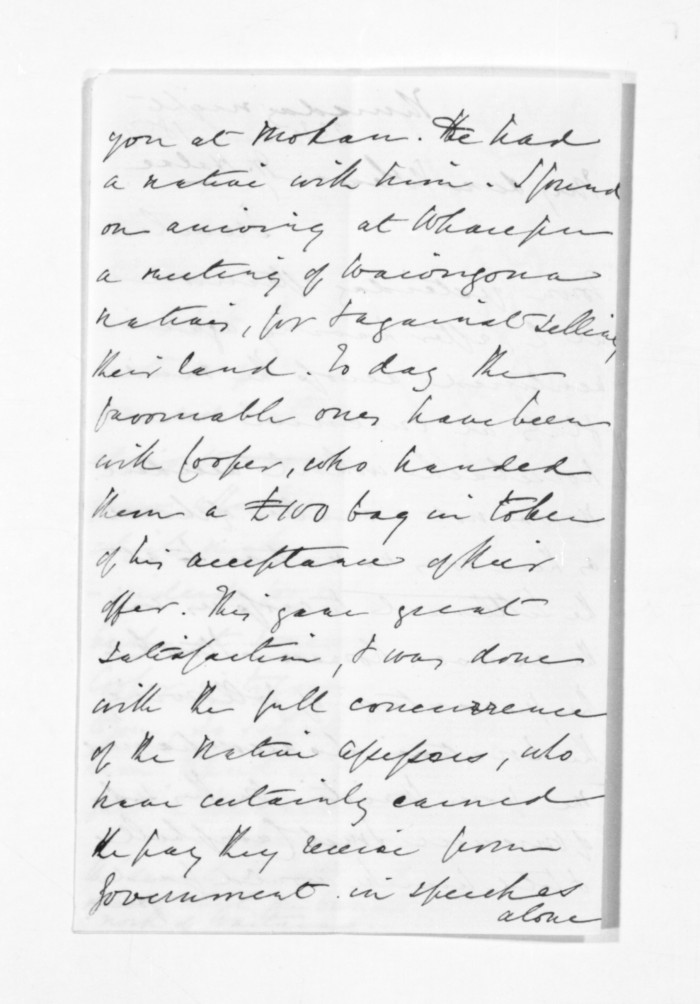 you at Mokau. He had
a native with him. I found
on arriving at Wharepu
a meeting of Waiongona
natives, for & against selling
their land. To day the
favorable ones have been
with Cooper, who handed
them a £100 bag in token
of his acceptance of their
offer. This gave great
satisfaction, & was done
with the full concurrence
of the Native Assessors, who
have certainly earned
the pay they receive from
Government in speeches
alone